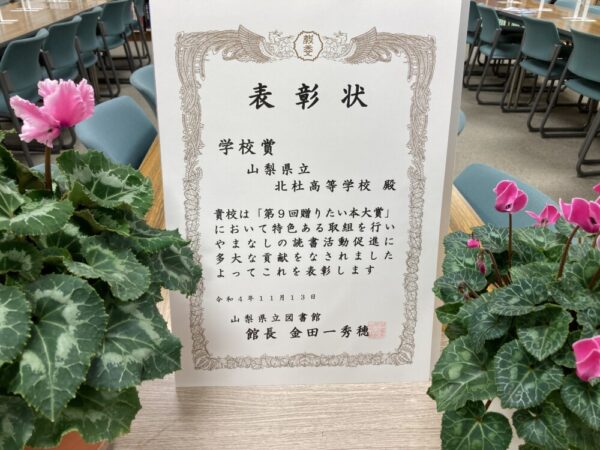 表彰状
学校賞
山梨県立
北杜高等学校 殿
貴校は「第９回贈りたい本大賞」
において特色ある取組を行い
やまなしの読書活動促進に
多大な貢献をなされました
よってこれを表彰します
令和４年１１月１３日
山梨県立図書館
館長 金田一秀穂